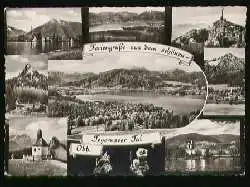 Feriengrüße aus dem schönen
Tegernseer Tal
Obb.